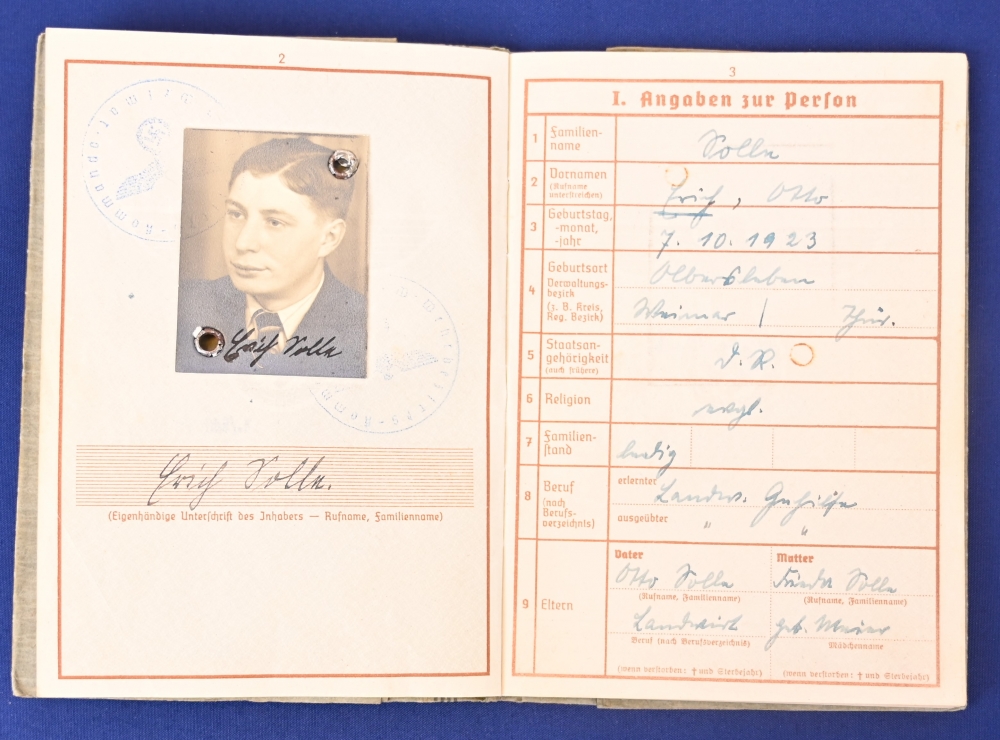 2
Erich Nolle
Erich Nolle.
(Eigenhändige Unterschrift des Inhabers — Rufname, Familienname)
3
I. Angaben zur Perſon
1 Familien-
name
Nolle
2 Vornamen
(Rufname
unterſtreichen)
Erich, Otto
3 Geburtstag,
-monat,
-jahr
7. 10. 1923
4 Geburtsort
Verwaltungs-
bezirk
(z. B. Kreis,
Reg. Bezirk)
Olbersleben
Weimar / Thür.
5 Staatsan-
gehörigkeit
(auch frühere)
D. R.
6 Religion
evgl.
7 Familien-
ſtand
ledig
8 Beruf
(nach
Berufs-
verzeichnis)
erlernter Landw. Gehilfe
ausgeübter " "
9 Eltern
Vater
Otto Nolle
(Rufname, Familienname)
Landwirt
Beruf (nach Berufsverzeichnis)
(wenn verſtorben: † und Sterbejahr)
Mutter
Frieda Nolle
(Rufname, Familienname)
geb. Meier
Mädchenname
(wenn verſtorben: † und Sterbejahr)